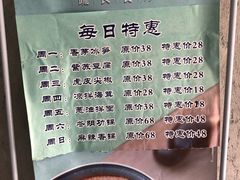 每日特惠
周一：香茅冰笋 原价38 特惠价28
周二：紫苏豆腐 原价38 特惠价28
周三：虎皮尖椒 原价38 特惠价28
周四：凉拌海茸 原价38 特惠价28
周五：葱油拌面 原价28 特惠价18
周六： 原价68 特惠价48
周日：麻辣香锅 原价68 特惠价48